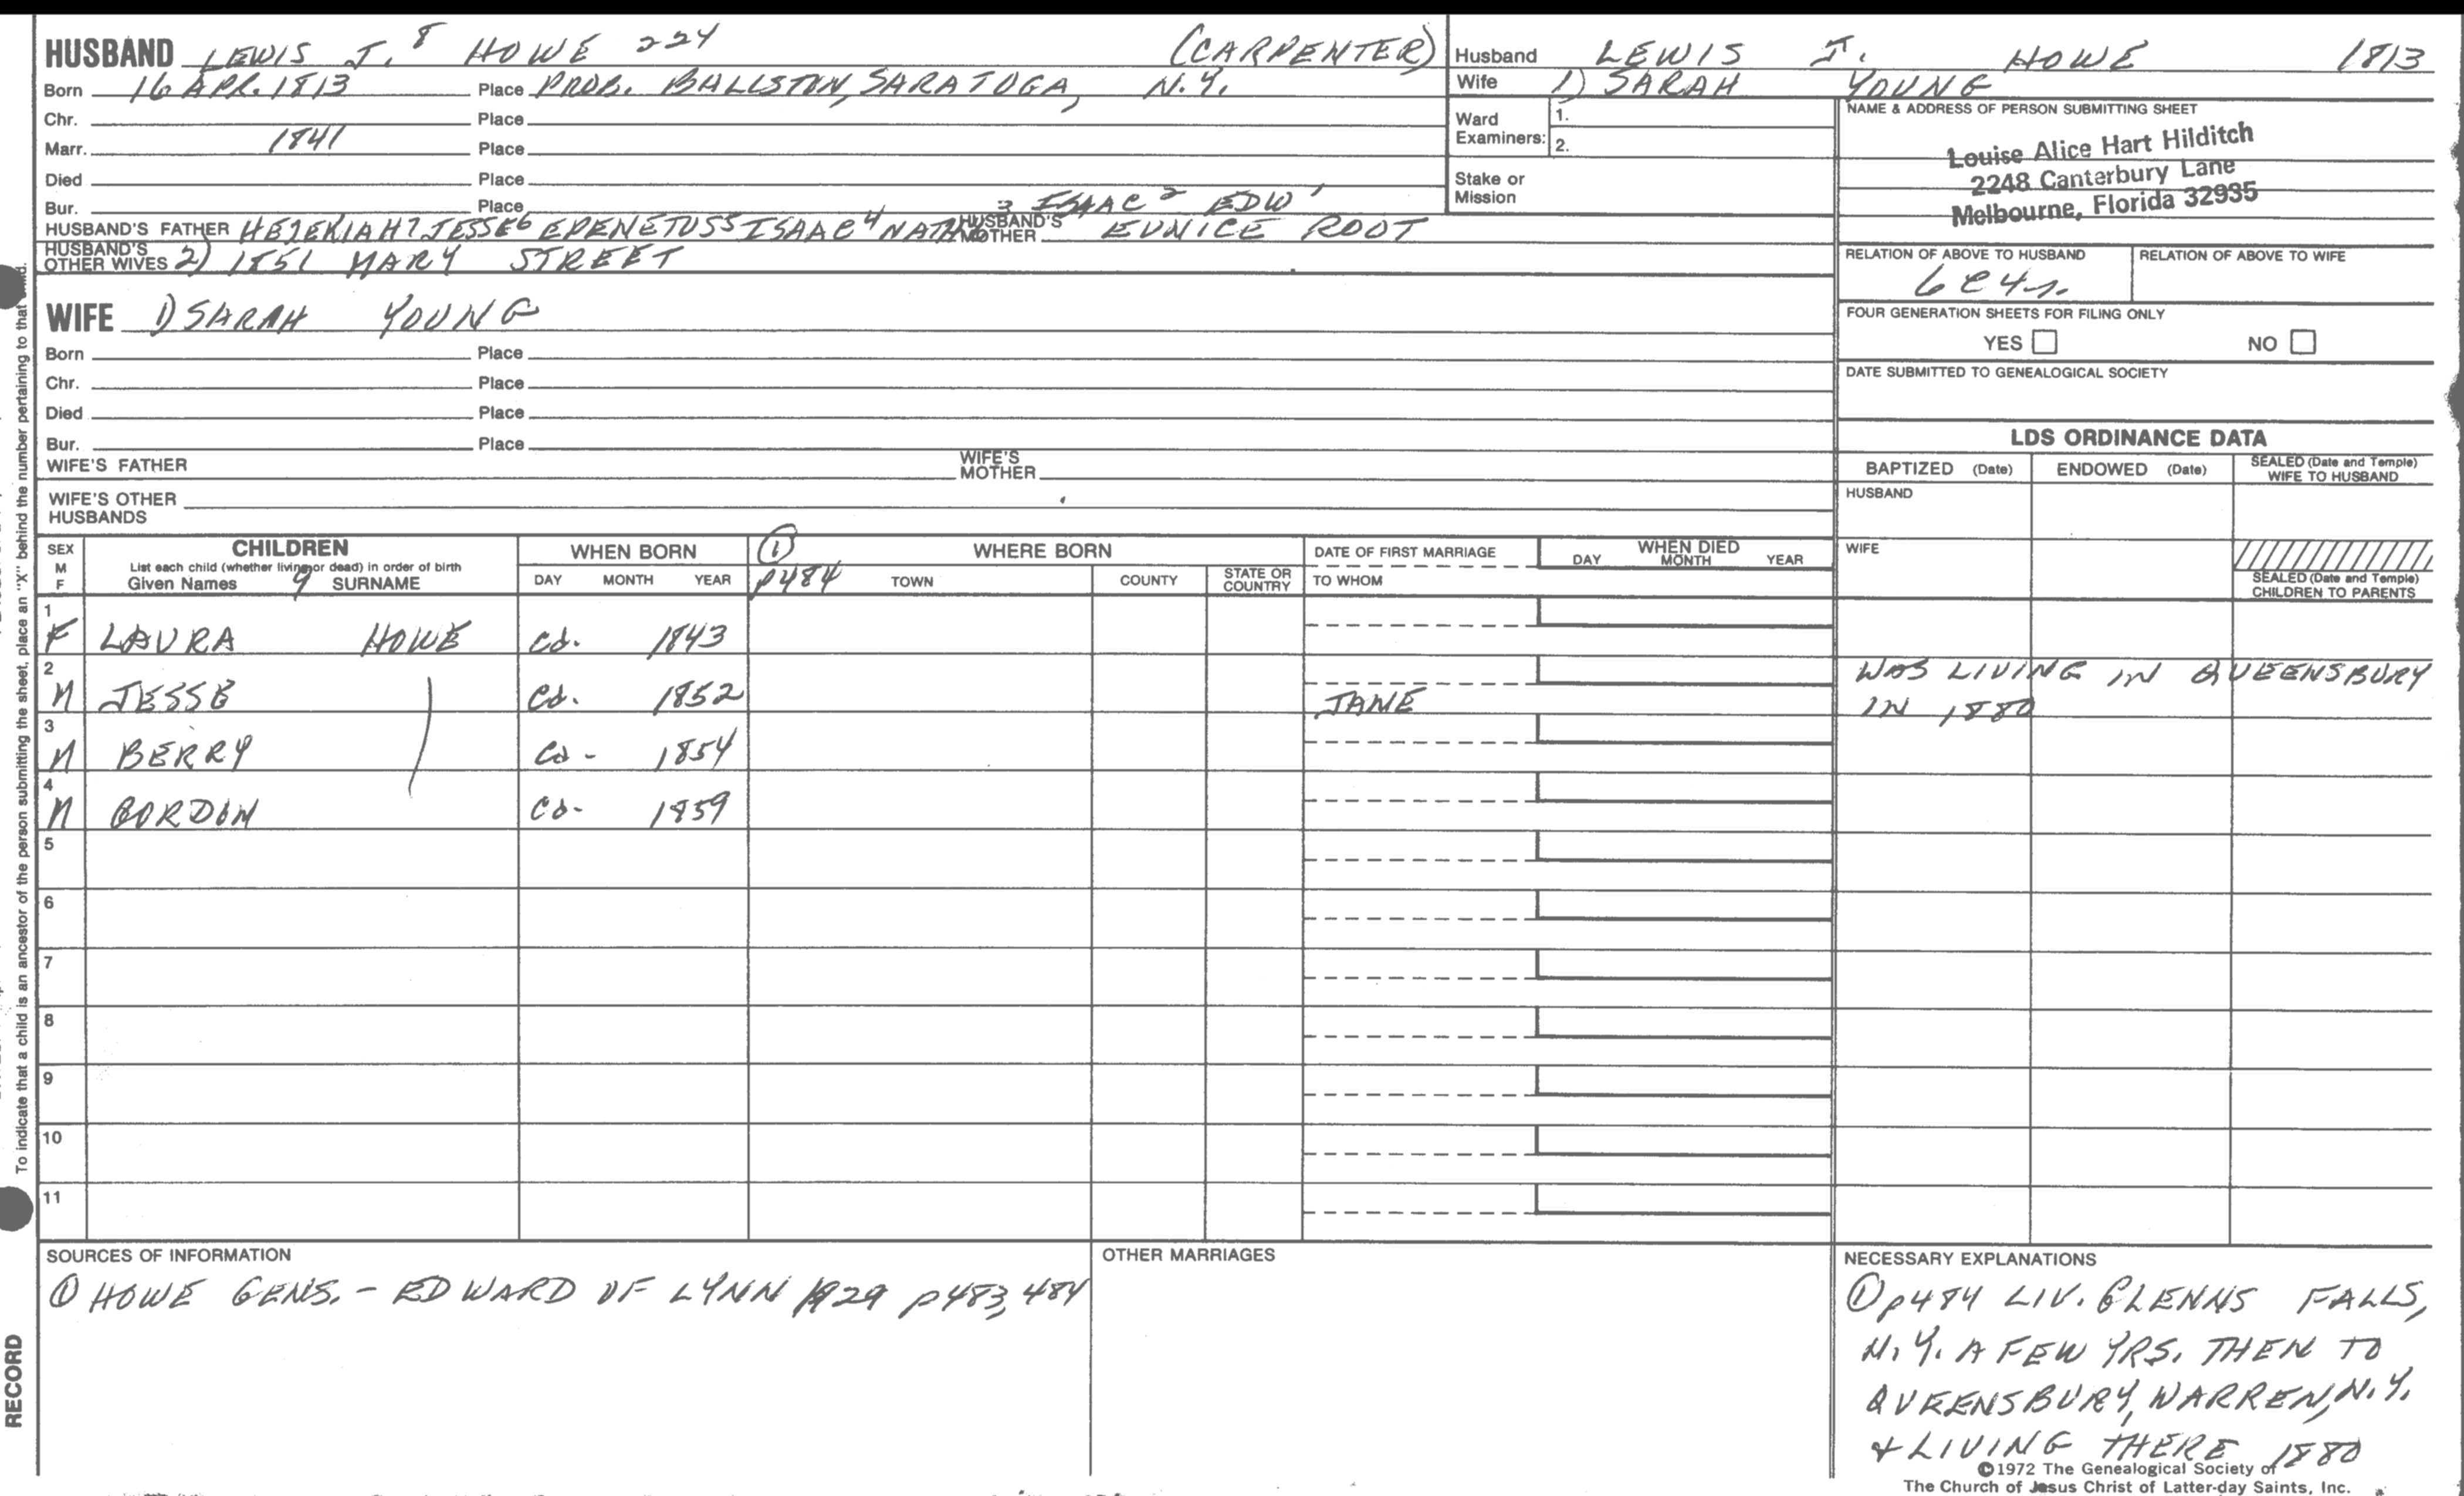 HUSBAND LEWIS J. 8 HOWE 224 (CARPENTER)
Born 16 APR. 1813 Place PROB. BALLSTON, SARATOGA, N.Y.
Chr. Place
Marr. 1841 Place
Died Place
Bur. Place 3 ISAAC 2 EDW 1
HUSBAND'S FATHER HEZEKIAH 7 JESSE 6 EPENETUS 5 ISAAC 4 NATH HUSBAND'S MOTHER EUNICE ROOT
HUSBAND'S OTHER WIVES 2) 1851 MARY STREET
WIFE 1) SARAH YOUNG
Born Place
Chr. Place
Died Place
Bur. Place
WIFE'S FATHER WIFE'S MOTHER
WIFE'S OTHER HUSBANDS
Husband LEWIS J. HOWE 1813
Wife 1) SARAH YOUNG
Ward Examiners: 1.
2.
Stake or Mission
NAME & ADDRESS OF PERSON SUBMITTING SHEET
Louise Alice Hart Hilditch
2248 Canterbury Lane
Melbourne, Florida 32935
RELATION OF ABOVE TO HUSBAND RELATION OF ABOVE TO WIFE
6c4r.
FOUR GENERATION SHEETS FOR FILING ONLY
YES NO
DATE SUBMITTED TO GENEALOGICAL SOCIETY
LDS ORDINANCE DATA
BAPTIZED (Date) ENDOWED (Date) SEALED (Date and Temple) WIFE TO HUSBAND
HUSBAND
WIFE
SEALED (Date and Temple) CHILDREN TO PARENTS
SEX M F CHILDREN WHEN BORN ① WHERE BORN DATE OF FIRST MARRIAGE WHEN DIED
List each child (whether living or dead) in order of birth
Given Names 9 SURNAME DAY MONTH YEAR p484 TOWN COUNTY STATE OR COUNTRY TO WHOM DAY MONTH YEAR
1 F LAURA HOWE Ca. 1843
2 M JESSE Ca. 1852 JANE WAS LIVING IN QUEENSBURY
IN 1880
3 M BERRY Ca - 1854
4 M GORDON Ca- 1859
5
6
7
8
9
10
11
SOURCES OF INFORMATION
① HOWE GENS. - EDWARD OF LYNN 1929 p483, 484
OTHER MARRIAGES
NECESSARY EXPLANATIONS
① p484 LIV. GLENNS FALLS,
N.Y. A FEW YRS. THEN TO
QUEENSBURY, WARREN, N.Y.
+ LIVING THERE 1880
©1972 The Genealogical Society of
The Church of Jesus Christ of Latter-day Saints, Inc.
To indicate that a child is an ancestor of the person submitting the sheet, place an "X" behind the number pertaining to that child.
RECORD